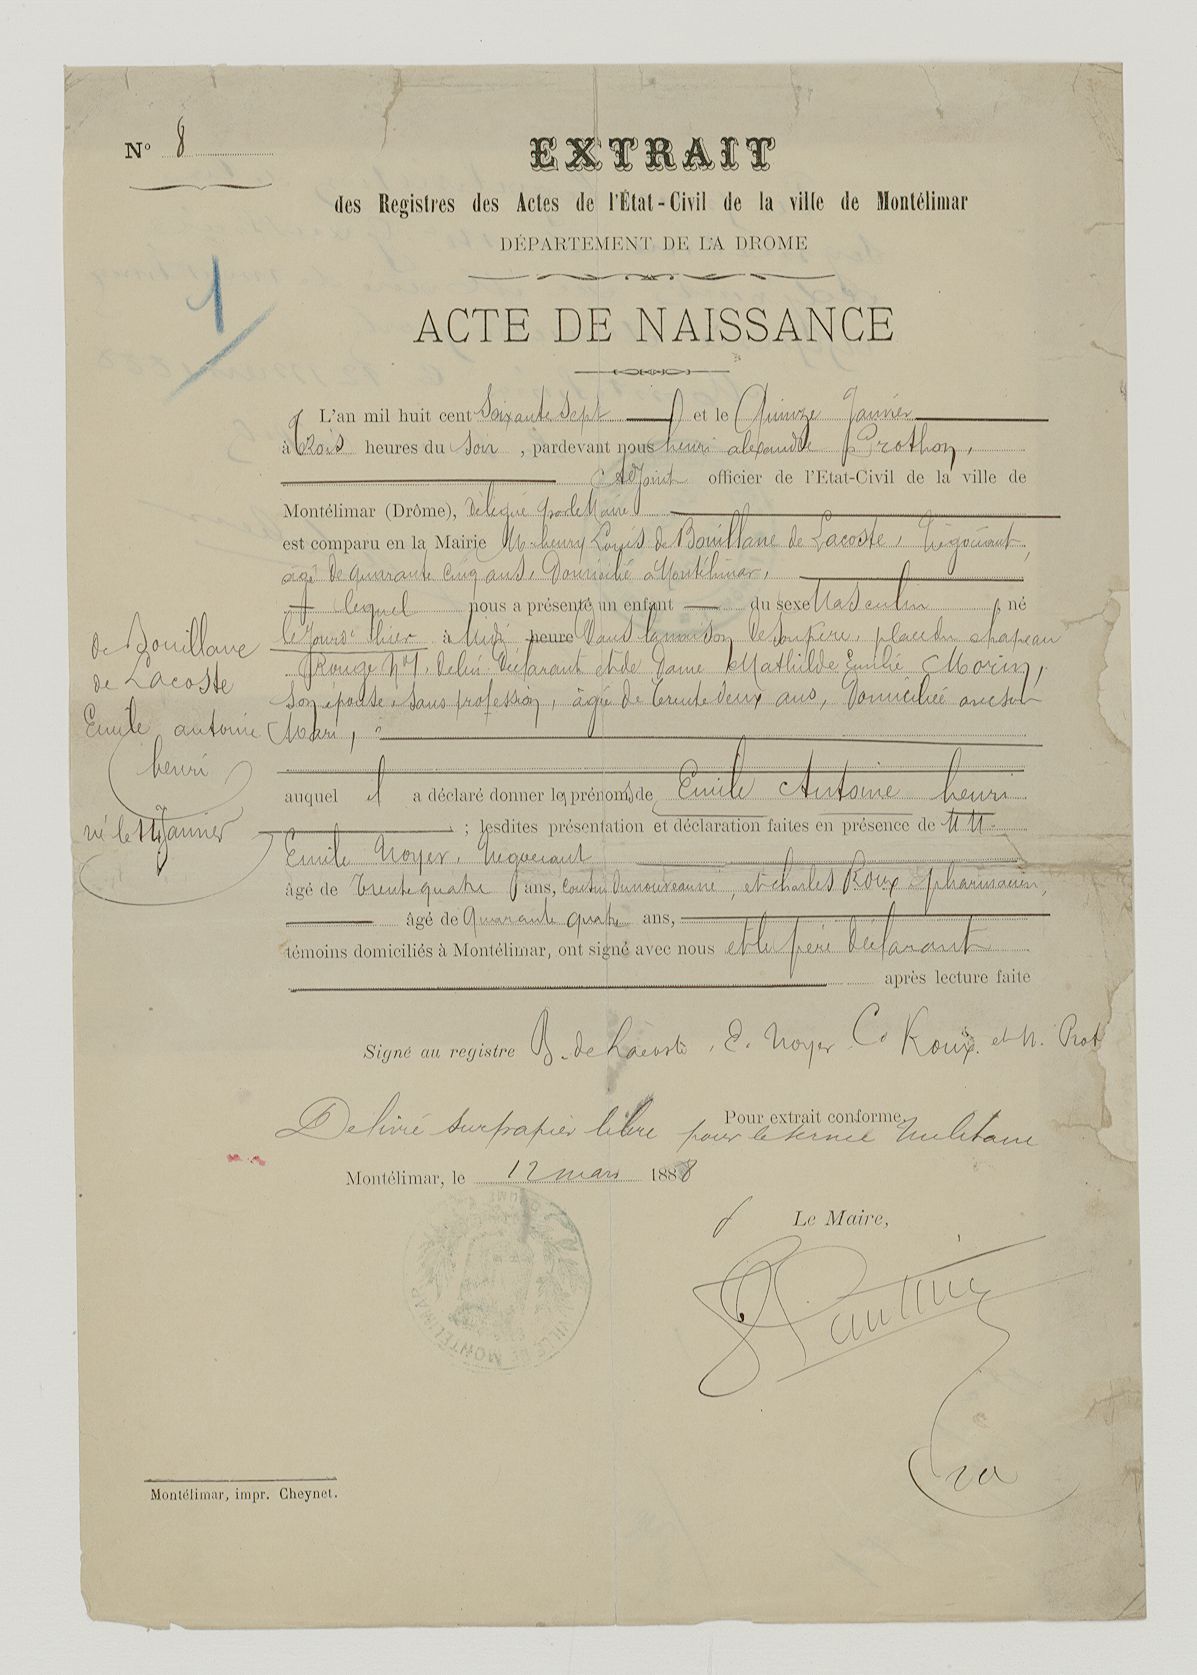 N° 8
EXTRAIT
des Registres des Actes de l'État-Civil de la ville de Montélimar
DÉPARTEMENT DE LA DROME
1
ACTE DE NAISSANCE
L'an mil huit cent Soixante Sept et le Quinze Janvier
à Trois heures du Soir, pardevant nous henri alexandre Prothon,
Adjoint officier de l'Etat-Civil de la ville de
Montélimar (Drôme), délégué par le Maire
est comparu en la Mairie M. henry Louis de Bouillane de Lacoste, Négociant,
âgé de quarante cinq ans, Domicilié à Montélimar,
lequel nous a présenté un enfant du sexe Masculin, né
le jours d'hier à Midi heure Dans la maison de son père, place du chapeau
Rouge N° 1, de lui Déclarant et de Dame Mathilde Emilie Morin,
son épouse, sans profession, âgée de trente deux ans, Domiciliée avec son
Mari,
auquel il a déclaré donner les prénoms de Emile Antoine henri
; lesdites présentation et déclaration faites en présence de MM.
Emile Noyer, Négociant
âgé de trente quatre ans, cousin du nouveau né, et charles Roux pharmacien,
âgé de Quarante quatre ans,
témoins domiciliés à Montélimar, ont signé avec nous et le père Déclarant
après lecture faite
de Bouillane
de Lacoste
Emile antoine
henri
né le 14 Janvier
Signé au registre B. de Lacoste, E. Noyer C. Roux. et H. Prot
Pour extrait conforme,
Délivré sur papier libre pour le service Militaire
Montélimar, le 12 mars 1888
Le Maire,
VILLE DE MONTÉLIMAR
Montélimar, impr. Cheynet.